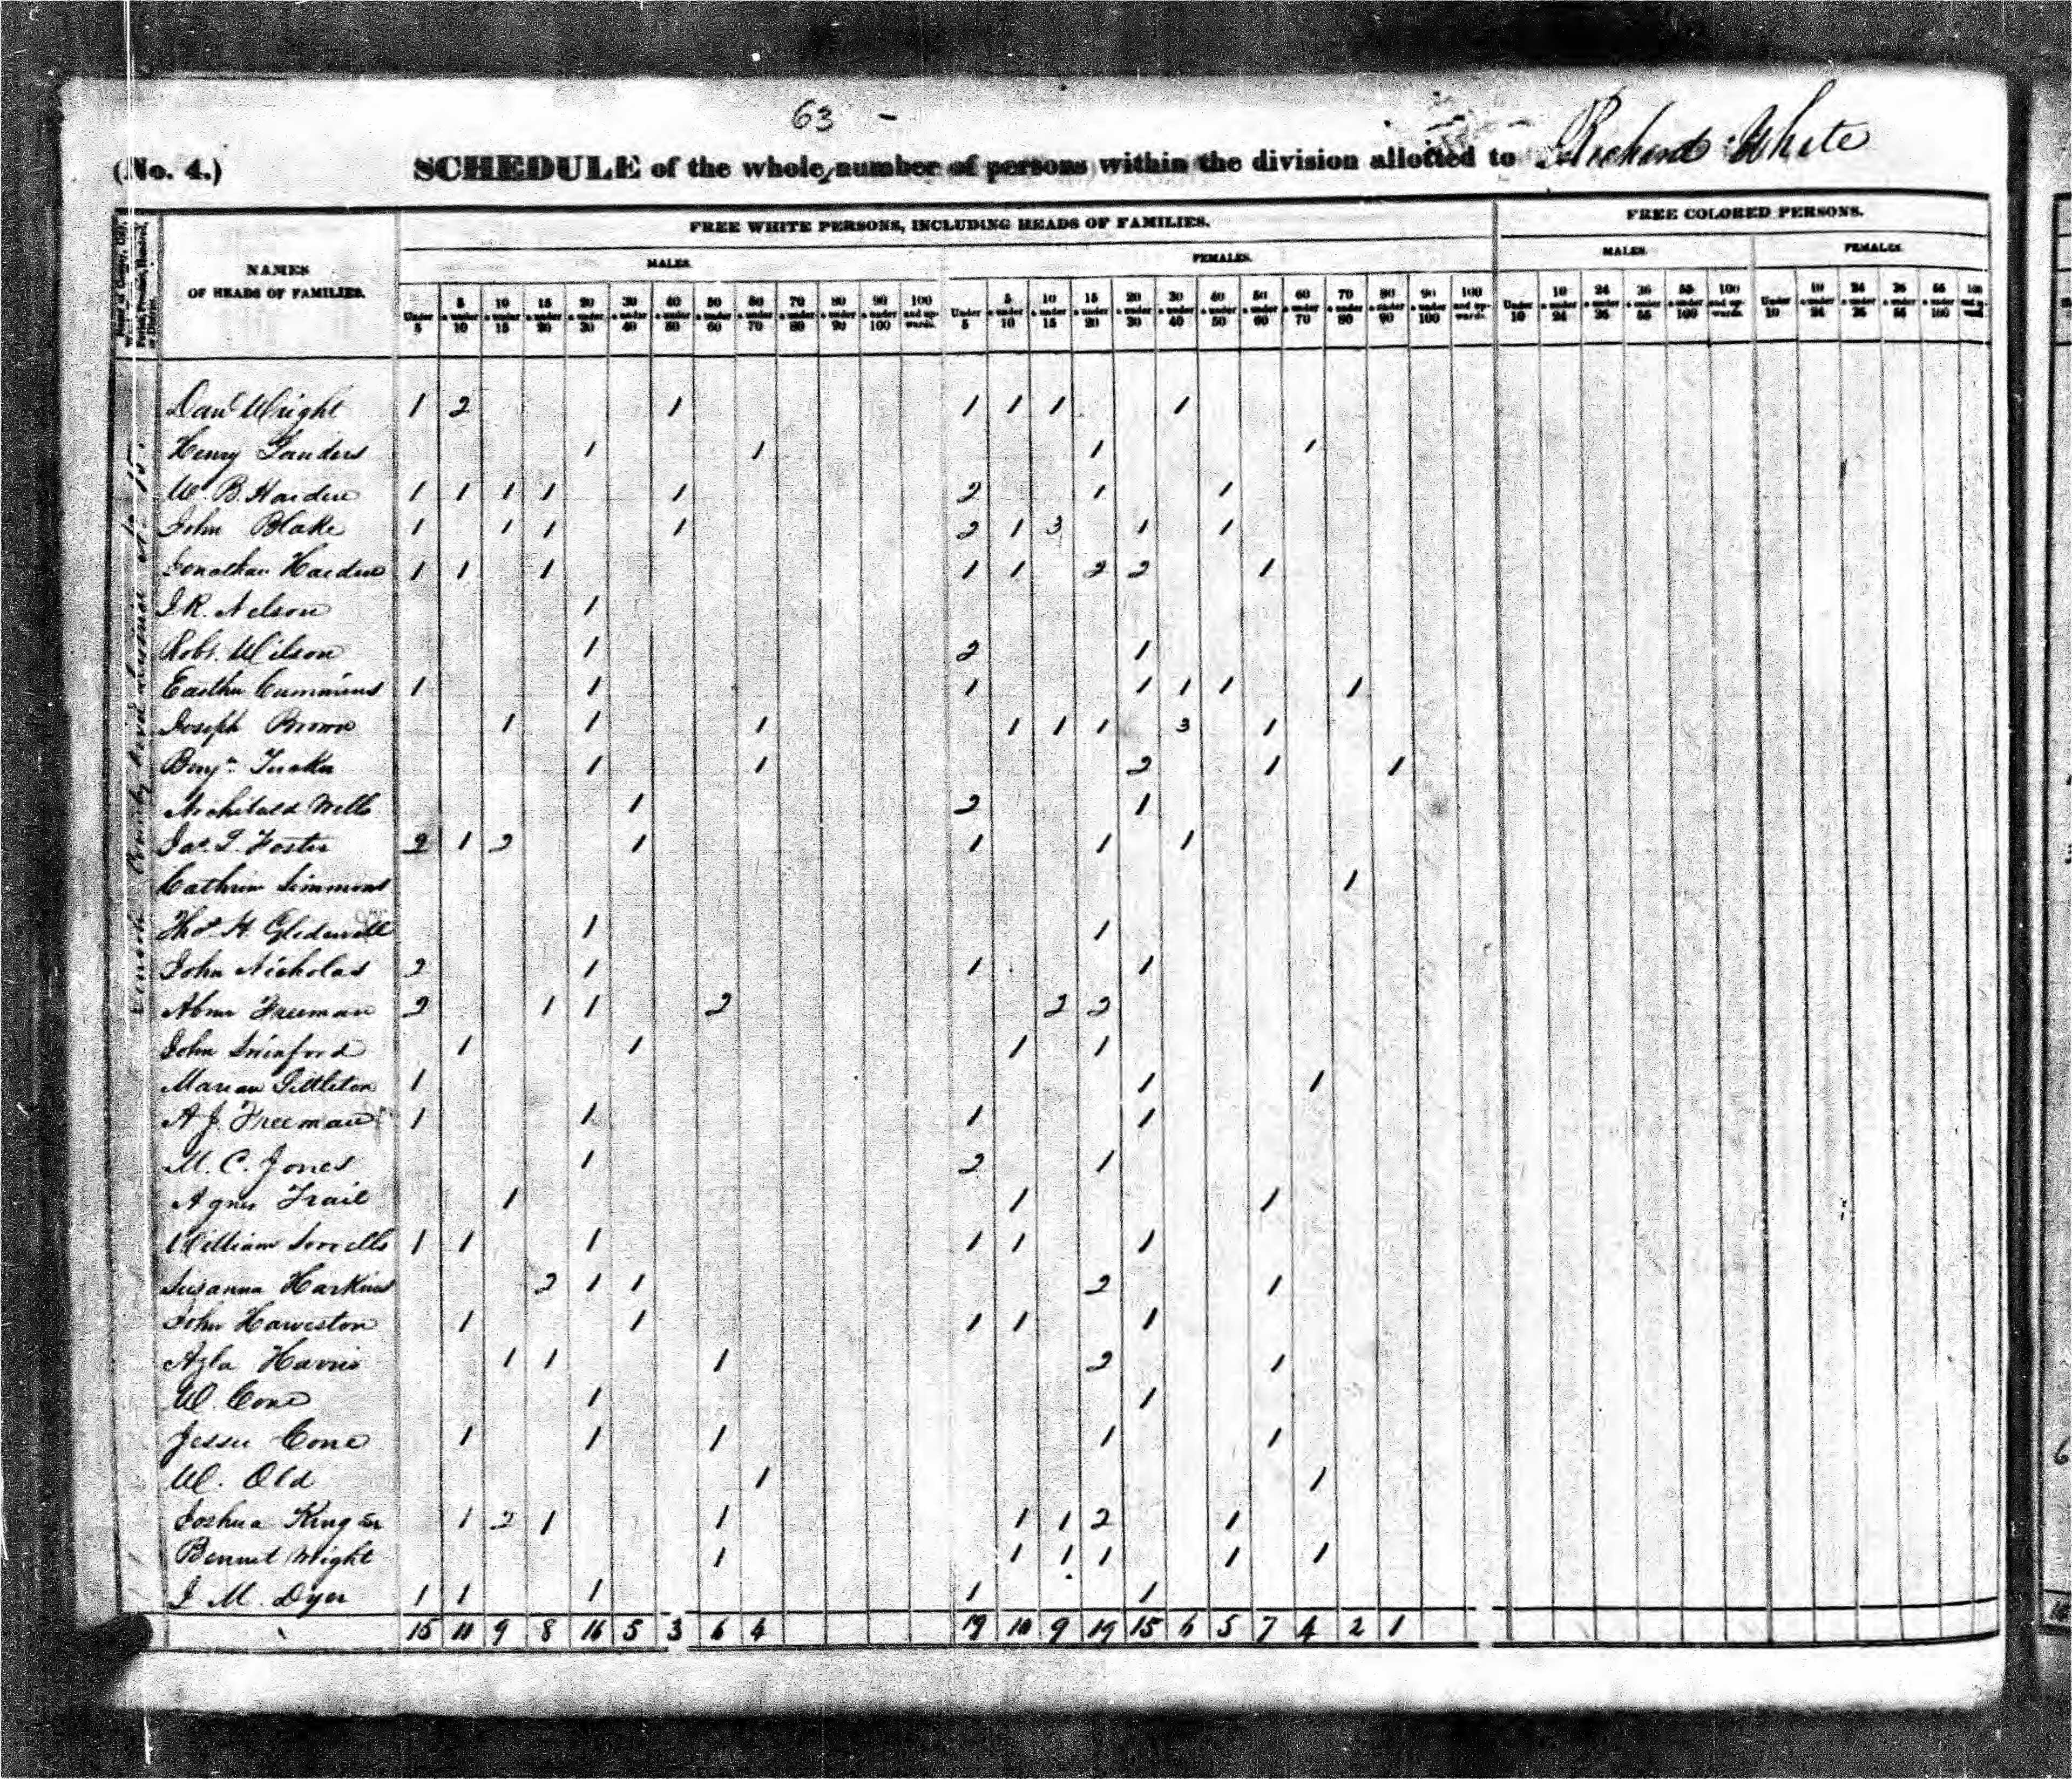 63 -
(No. 4.) SCHEDULE of the whole number of persons within the division allotted to Richard White
NAMES OF HEADS OF FAMILIES.
FREE WHITE PERSONS, INCLUDING HEADS OF FAMILIES.
FREE COLORED PERSONS.
MALES. FEMALES. MALES. FEMALES.
Under 5 5 & under 10 10 & under 15 15 & under 20 20 & under 30 30 & under 40 40 & under 50 50 & under 60 60 & under 70 70 & under 80 80 & under 90 90 & under 100 100 and upwards. Under 5 5 & under 10 10 & under 15 15 & under 20 20 & under 30 30 & under 40 40 & under 50 50 & under 60 60 & under 70 70 & under 80 80 & under 90 90 & under 100 100 and upwards. Under 10 10 & under 24 24 & under 36 36 & under 55 55 & under 100 100 and upwards. Under 10 10 & under 24 24 & under 36 36 & under 55 55 & under 100
Danl Wright 1 2 1 1 1 1 1
Henry Sanders 1 1 1 1
W. B. Harden 1 1 1 1 1 2 1 1
John Blake 1 1 1 1 2 1 3 1 1
Jonathan Harden 1 1 1 1 1 2 2 1
J. R. Nelson 1
Robt. Wilson 1 2 1
Easther Cummins 1 1 1 1 1 1 1
Joseph Brown 1 1 1 1 1 1 3 1
Benjn Tucker 1 1 2 1 1
Archibald Wells 1 2 1
Jas. T. Foster 2 1 2 1 1 1 1
Cathrin Simmons 1
Thos. H. Gledewell 1 1
John Nicholas 2 1 1 1
Abner Freeman 2 1 1 2 2 2
John Swinford 1 1 1 1
Marian Littleton 1 1 1
A J. Freeman 1 1 1 1
M. C. Jones 1 2 1
Agnes Trail 1 1 1
William Sorrells 1 1 1 1 1 1
Susanna Harkins 2 1 1 2 1
John Haweston 1 1 1 1 1
Azla Harris 1 1 1 2 1
W. Cone 1 1
Jesse Cone 1 1 1 1 1
W. Old 1 1
Joshua King Sr 1 2 1 1 1 1 2 1
Bennet Wright 1 1 1 1 1 1
J M. Dyer 1 1 1 1 1
15 11 9 8 16 5 3 6 4 19 10 9 19 15 6 5 7 4 2 1